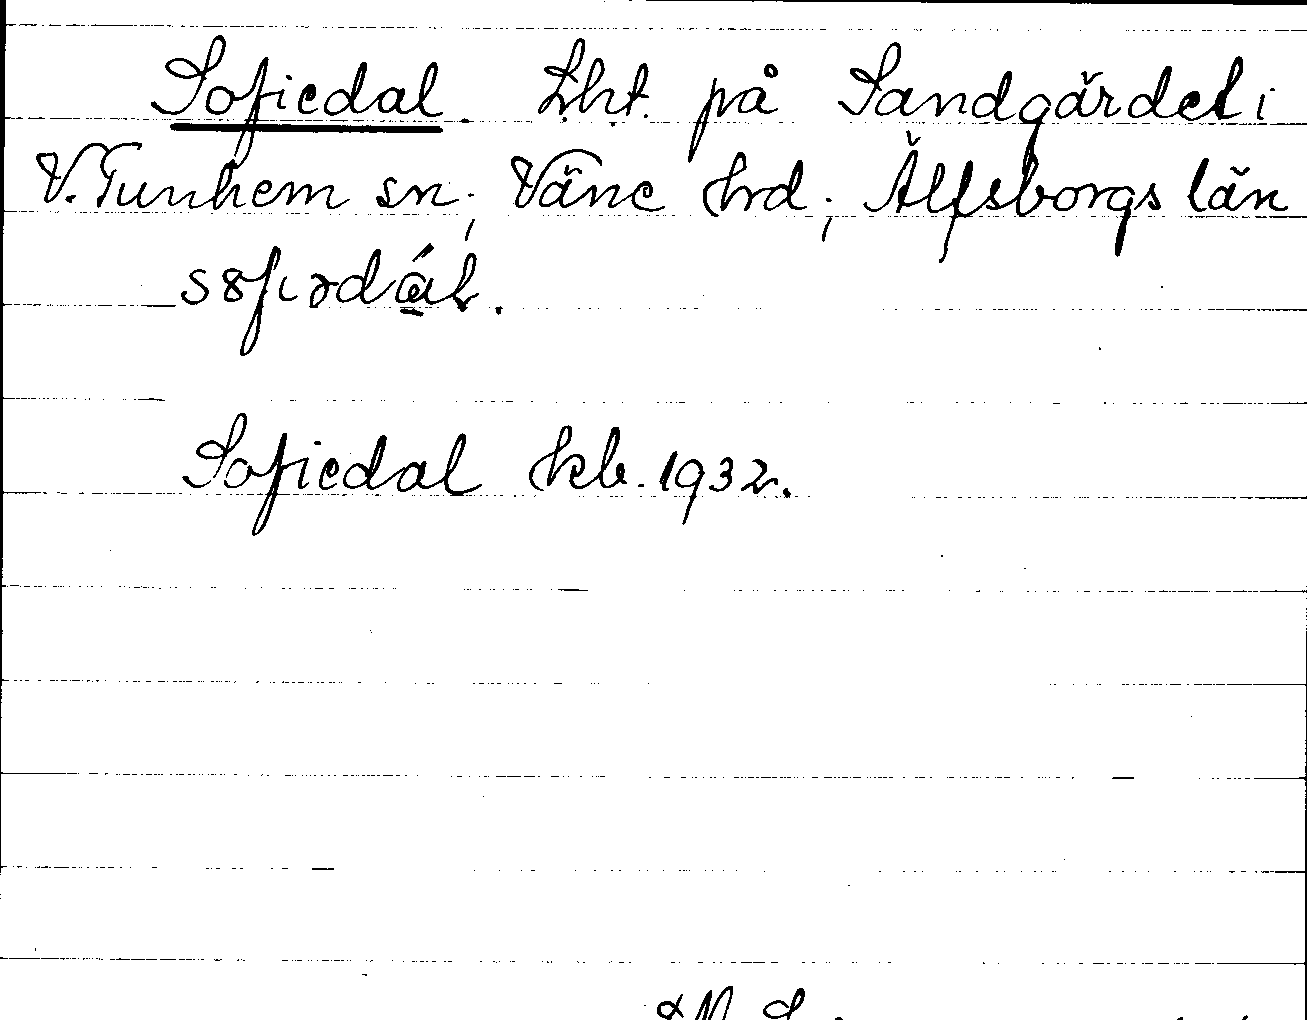 Sofiedal. Lht. på Sandgärdet i
V. Tunhem sn; Väne hrd; Älfsborgs län
Sofiedal hkb. 1932.